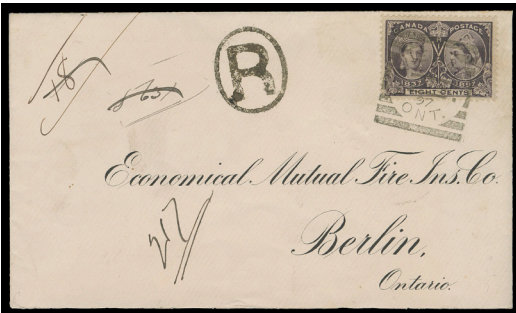 R
CANADA POSTAGE
1837 1897
EIGHT CENTS
37
ONT.
Economical Mutual Fire Ins. Co.
Berlin,
Ontario.